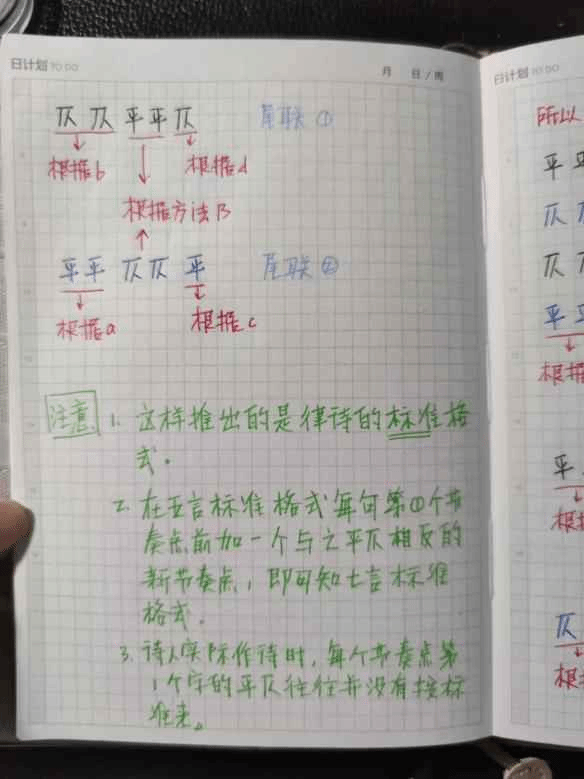 日计划 TO DO
月 日/周
仄仄 平平 仄 尾联①
根据b 根据d
根据方法B
平平 仄仄 平 尾联②
根据a 根据c
注意 1. 这样推出的是律诗的标准格
式.
2. 在五言标准格式每句第①个节
奏点前加一个与之平仄相反的
新节奏点,即可知七言标准
格式.
3. 诗人实际作诗时,每个节奏点第
1个字的平仄往往并没有按标
准来。
日计划 TO DO
所以
平
仄
仄
平
根据
平
仄